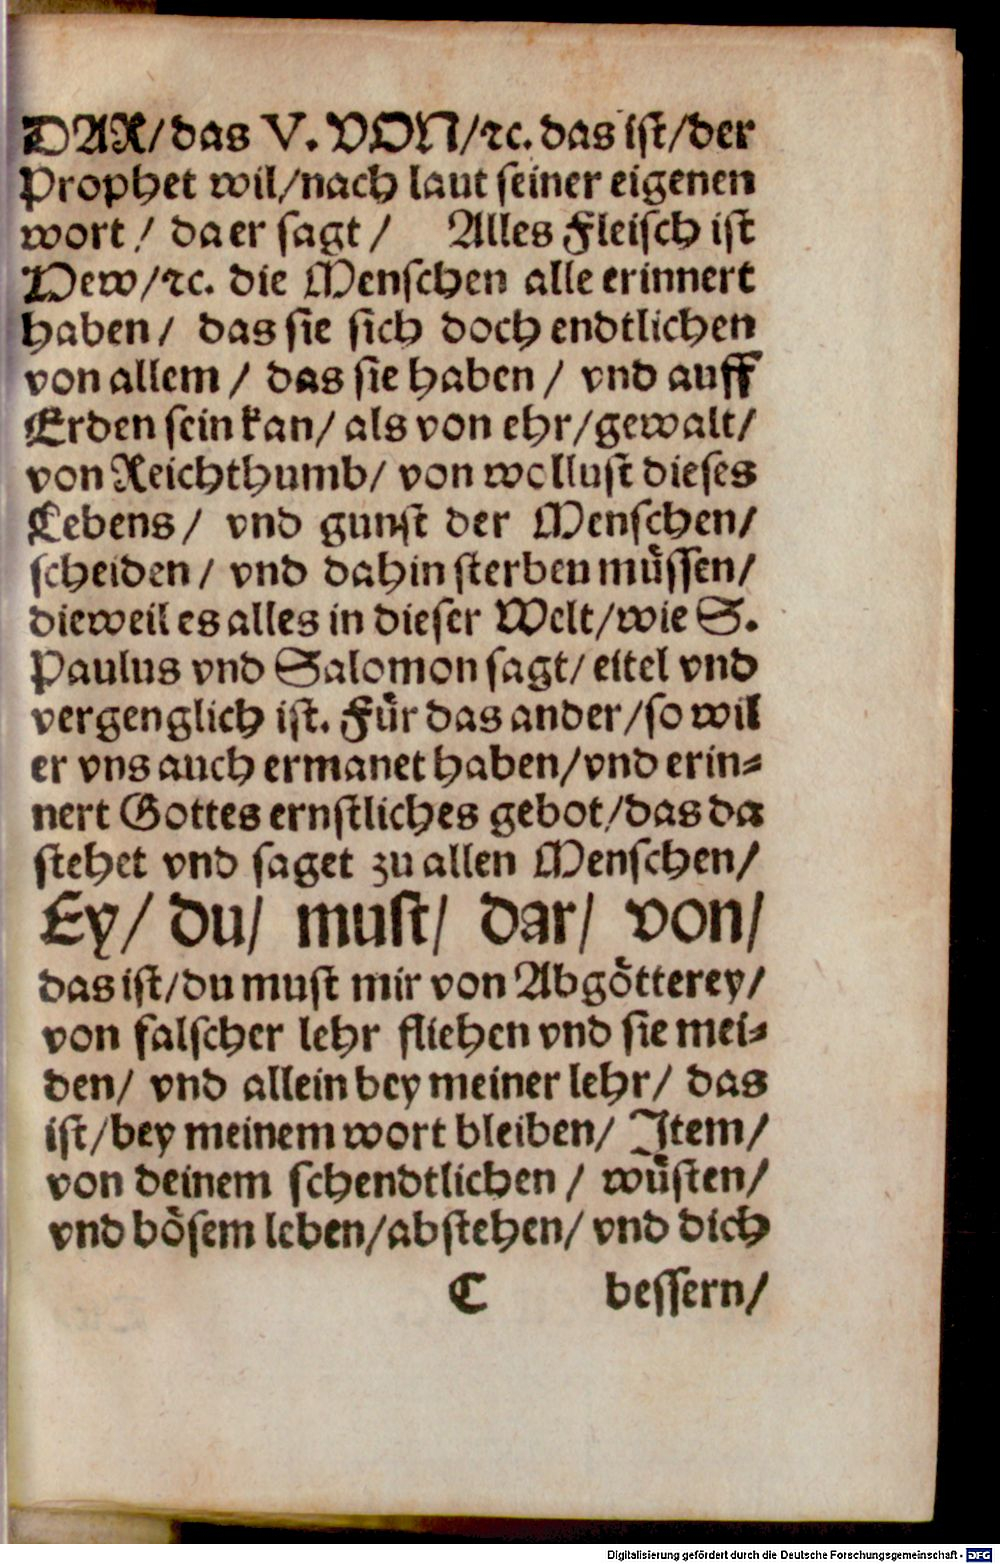 DAR/das V. VON/ꝛc. das iſt/der
Prophet wil/nach laut ſeiner eigenen
wort/ da er ſagt/ Alles Fleiſch iſt
Hew/ꝛc. die Menſchen alle erinnert
haben/ das ſie ſich doch endtlichen
von allem/ das ſie haben/ vnd auff
Erden ſein kan/ als von ehr/gewalt/
von Reichthumb/ von wolluſt dieſes
Lebens/ vnd gunſt der Menſchen/
ſcheiden/ vnd dahin ſterben müſſen/
dieweil es alles in dieſer Welt/wie S.
Paulus vnd Salomon ſagt/ eitel vnd
vergenglich iſt. Für das ander/ſo wil
er vns auch ermanet haben/vnd erin⸗
nert Gottes ernſtliches gebot/das da
ſtehet vnd ſaget zu allen Menſchen/
Ey/ du/ muſt/ dar/ von/
das iſt/du muſt mir von Abgötterey/
von falſcher lehr fliehen vnd ſie mei⸗
den/ vnd allein bey meiner lehr/ das
iſt/bey meinem wort bleiben/ Item/
von deinem ſchendtlichen/ wüſten/
vnd böſem leben/abſtehen/ vnd dich
C beſſern/
Digitalisierung gefördert durch die Deutsche Forschungsgemeinschaft - DFG